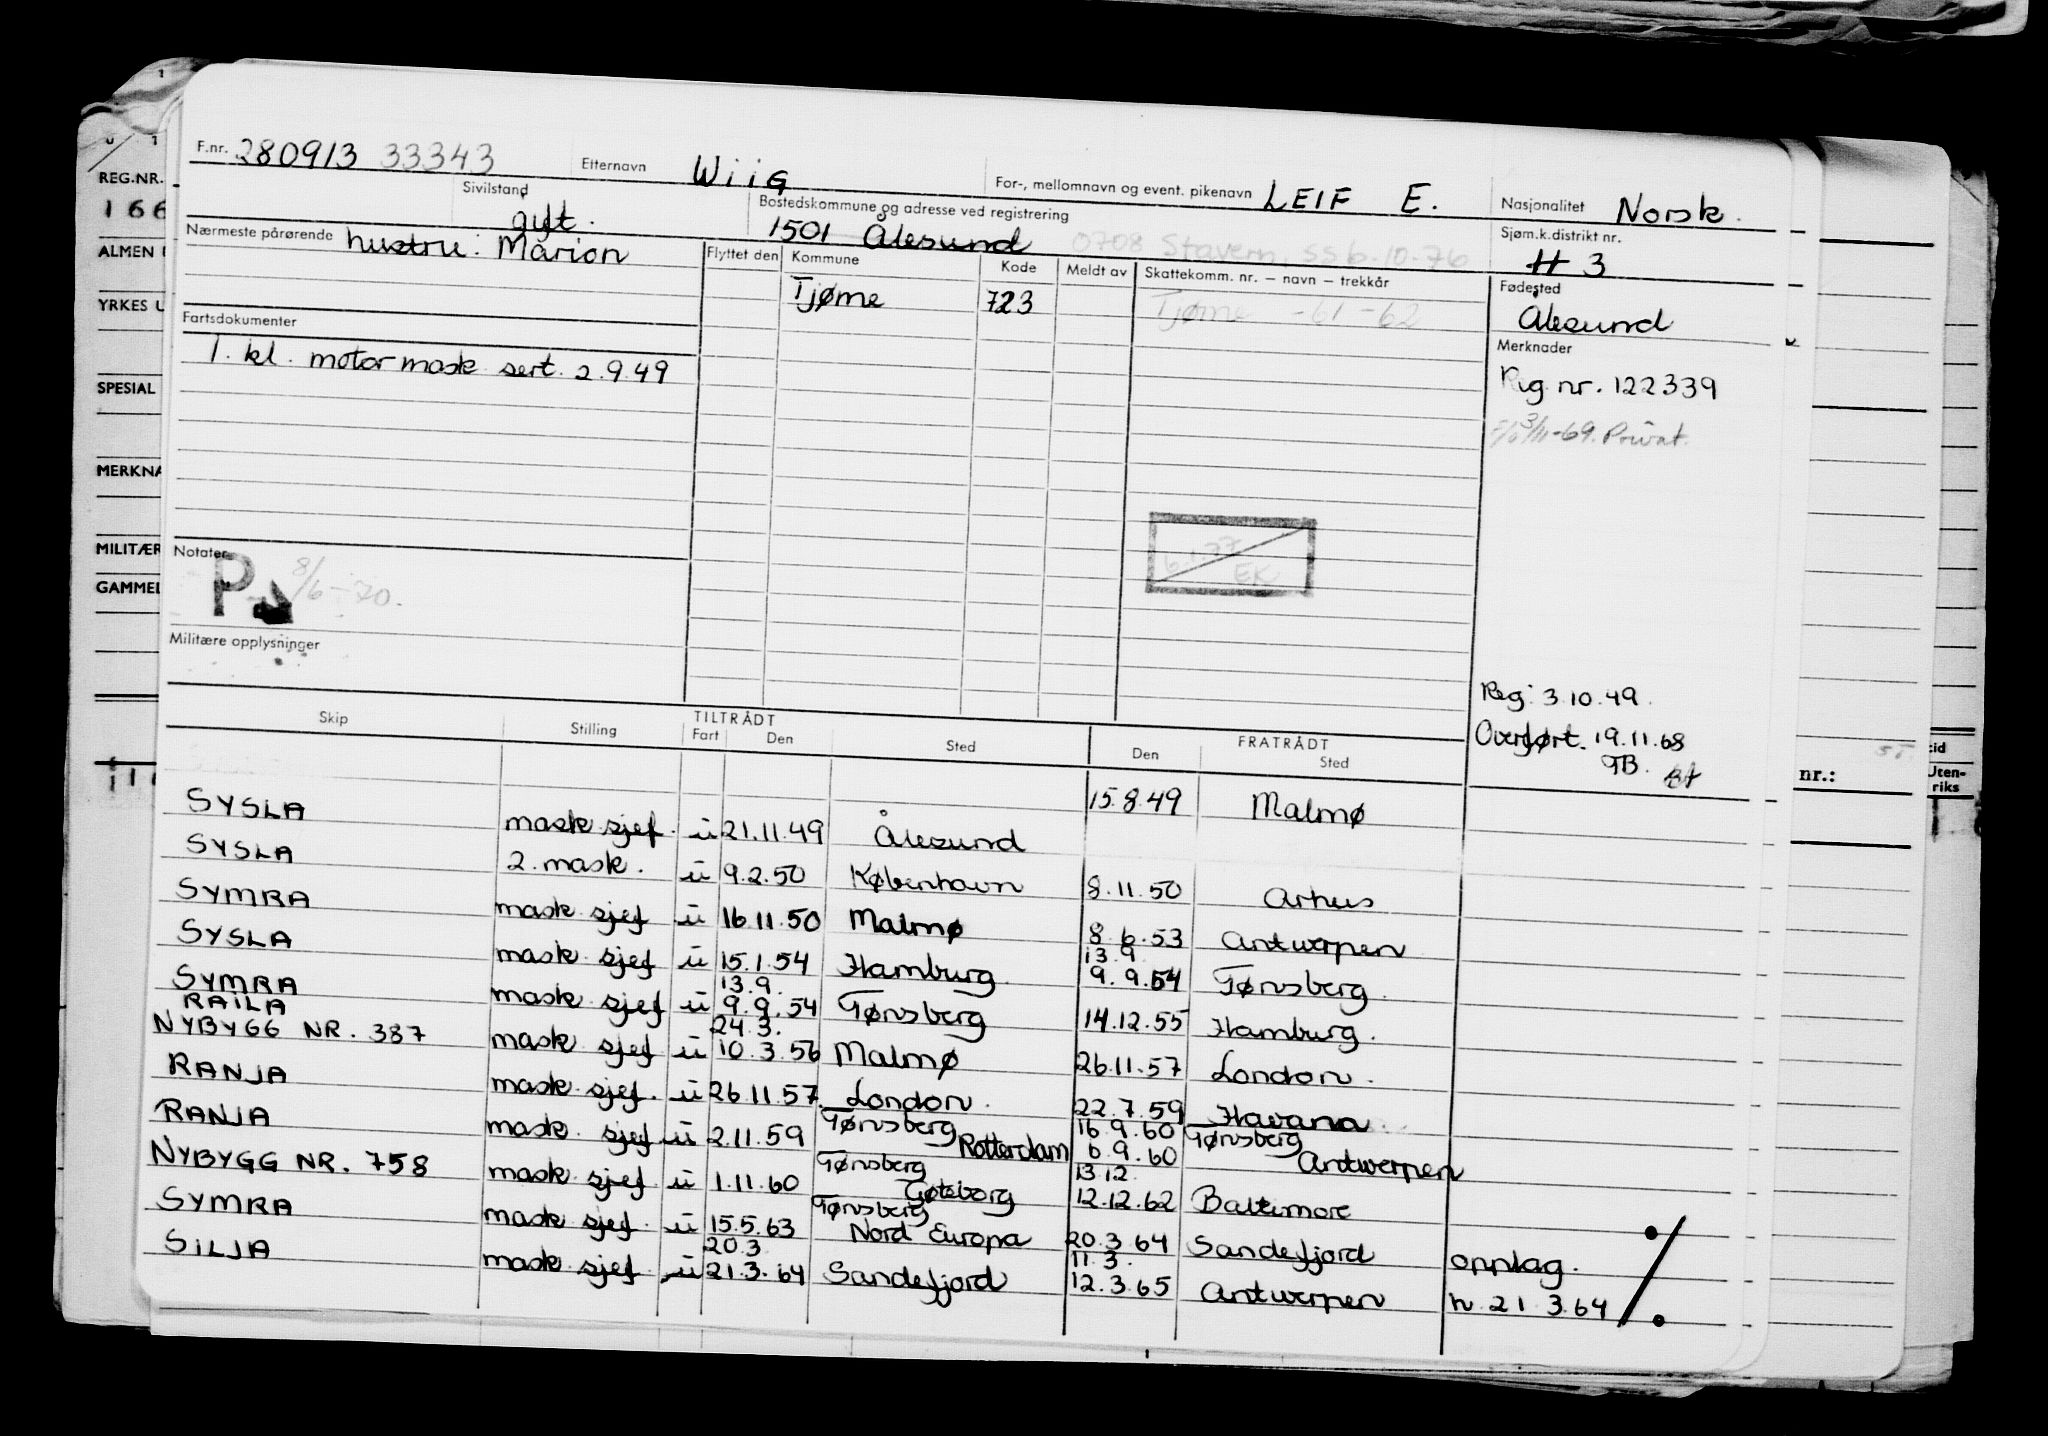 F.nr. 280913 33343 Etternavn Wiig For-, mellomnavn og event. pikenavn LEIF E. Nasjonalitet Norsk.
REG.NR.
166
Sivilstand gift. Bostedskommune og adresse ved registrering 1501 Ålesund 0708 Stavern, ss 6.10.76 Sjøm.k.distrikt nr. 3
Nærmeste pårørende hustru: Marion Flyttet den Kommune Kode Meldt av Skattekomm. nr. – navn – trekkår Fødested
ALMEN
Tjøme 723 Tjøme -61-62 Ålesund
YRKES U
Fartsdokumenter Merknader
1. kl. motor mask sert. 2.9.49 Reg nr. 122339
3/11-69. Privat.
SPESIAL
MERKNA
MILITÆR
GAMMEL
Notater
P 8/6-70.
EK
Militære opplysninger
Reg. 3.10.49.
Overført. 19.11.68
TB.
nr.:
tid
Uten-
riks
Skip Stilling TILTRÅDT Fart Den Sted FRATRÅDT Den Sted
15.8.49 Malmø
SYSLA mask sjef. u 21.11.49 Ålesund
SYSLA 2. mask. u 9.2.50 København 8.11.50 Århus
SYMRA mask sjef u 16.11.50 Malmø 8.6.53 Antwerpen
13.9
SYSLA mask sjef u 15.1.54 Hamburg 9.9.54 Tønsberg.
13.9.
SYMRA mask sjef u 9.9.54 Tønsberg 14.12.55 Hamburg.
RAILA 24.3.
NYBYGG NR. 387 mask sjef u 10.3.56 Malmø 26.11.57 London.
RANJA mask sjef. u 26.11.57 London. 22.7.59 Havana
Tønsberg 16.9.60 Tønsberg
RANJA mask. sjef u 2.11.59 Rotterdam 6.9.60 Antwerpen
Tønsberg 13.12.
NYBYGG NR. 758 mask sjef u 1.11.60 Gøteborg 12.12.62 Baltimore
Tønsberg
SYMRA mask sjef. u 15.5.63 Nord Europa 20.3.64 Sandefjord opplag.
20.3 11.3.
SILJA mask sjef u 21.3.64 Sandefjord 12.3.65 Antwerpen h. 21.3.64